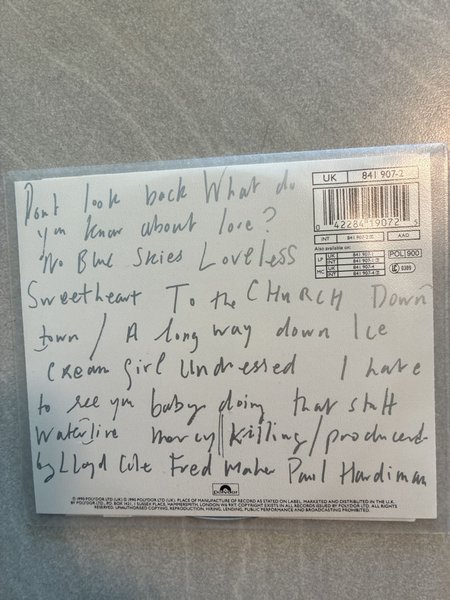 Don't look back What do
you know about love?
No Blue Skies Loveless
Sweetheart To the CHURCH Down
town / A long way down Ice
Cream Girl Undressed I hate
to see you baby doing that stuff
Waterline Mercy Killing / produced
by Lloyd Cole Fred Maher Paul Hardiman
UK 841 907-2
0 42284 19072 5
INT 841 907-2
AAD
Also available on:
LP UK 841 907-1
INT 841 907-1
MC UK 841 907-4
INT 841 907-4
POL 900
polydor
© 1990 POLYDOR LTD (UK) ℗ 1990 POLYDOR LTD (UK). PLACE OF MANUFACTURE OF RECORD AS STATED ON LABEL. MARKETED AND DISTRIBUTED IN THE U.K.
BY POLYDOR LTD., P.O. BOX 1421, 1 SUSSEX PLACE, HAMMERSMITH, LONDON W6 9XT. COPYRIGHT EXISTS IN ALL RECORDS ISSUED BY POLYDOR LTD. ALL RIGHTS
RESERVED. UNAUTHORISED COPYING, REPRODUCTION, HIRING, LENDING, PUBLIC PERFORMANCE AND BROADCASTING PROHIBITED.